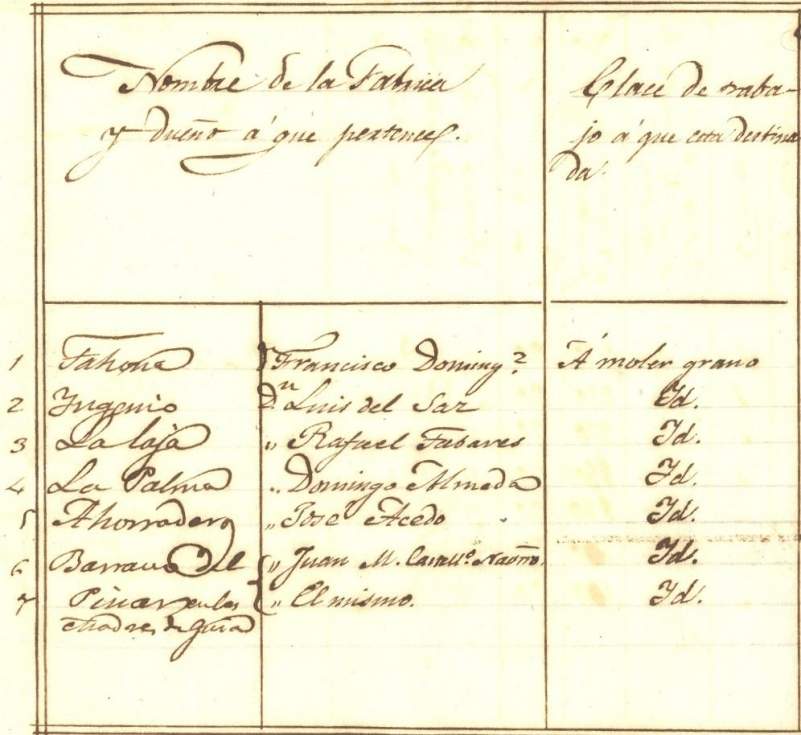 Nombre de la Fabrica
y dueño á que pertenece.
Clace de traba-
jo á que esta destina
da.
1 Tahona Francisco Doming.z Á moler grano
2 Ingenio Dn Luis del Saz Id.
3 La laja " Rafael Tabares Id.
4 La Palma " Domingo Almeda Id.
5 Ahorradero " José Acedo Id.
6 Barranco del " Juan M. Id.
7 Pinar en las " El mismo. Id.
Madres de Guia